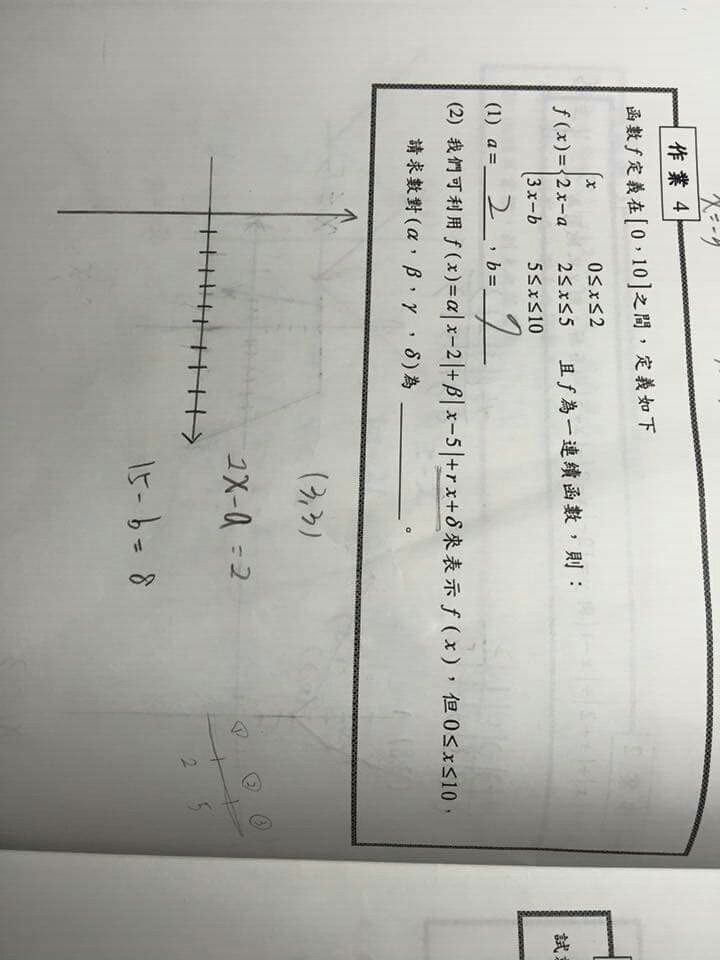 作業 4
函數 f 定義在[0,10]之間,定義如下
f(x)={x 0≤x≤2
2x-a 2≤x≤5 且 f 為一連續函數,則:
3x-b 5≤x≤10
(1) a= 2 , b= 7
(2) 我們可利用 f(x)=α|x-2|+β|x-5|+rx+δ來表示 f(x),但 0≤x≤10,
請求數對(α,β,γ,δ)為 ______。
(3,3)
2x-a=2
15-b=8
① ② ③
2 5